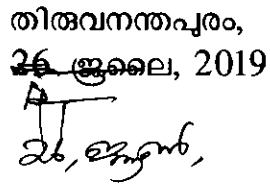 തിരുവനന്തപുരം,
26 ജൂലൈ, 2019
26, ജൂൺ,